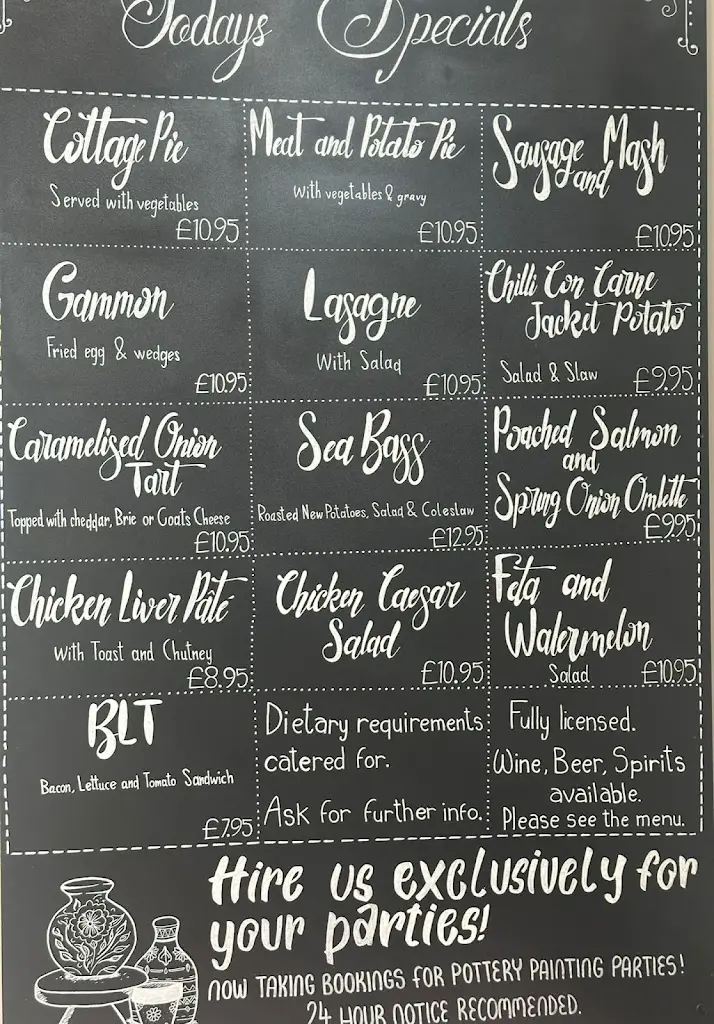 Todays Specials
Cottage Pie
Served with vegetables
£10.95
Meat and Potato Pie
With vegetables & gravy
£10.95
Sausage and Mash
£10.95
Gammon
Fried egg & wedges
£10.95
Lasagne
With Salad
£10.95
Chilli Con Carne
Jacket Potato
Salad & Slaw £9.95
Caramelised Onion
Tart
Topped with cheddar, Brie or Goats Cheese
£10.95
Sea Bass
Roasted New Potatoes, Salad & Coleslaw
£12.95
Poached Salmon
and
Spring Onion Omlette
£9.95
Chicken Liver Pâté
With Toast and Chutney
£8.95
Chicken Caesar
Salad
£10.95
Feta and
Watermelon
Salad £10.95
BLT
Bacon, Lettuce and Tomato Sandwich
£7.95
Dietary requirements
catered for.
Ask for further info.
Fully licensed.
Wine, Beer, Spirits
available.
Please see the menu.
Hire us exclusively for
your parties!
NOW TAKING BOOKINGS FOR POTTERY PAINTING PARTIES!
24 HOUR NOTICE RECOMMENDED.